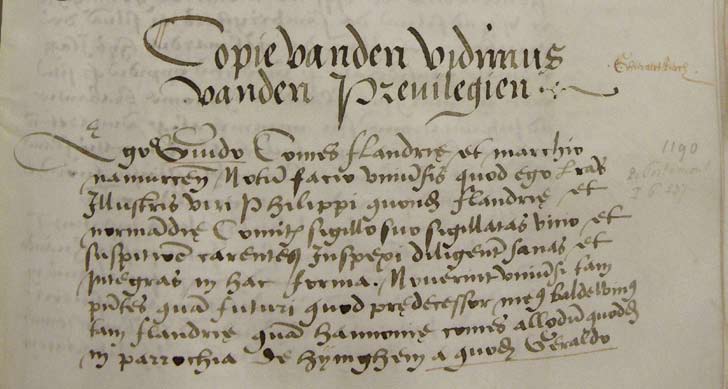 Copie vanden vidimus
vanden Previlegien
Ego Guido Comes flandrię et marchio
namurcen̄ Notū facio vniūsis quod ego lr̄as
Illustris viri Philippi quondā flandrię et
normādię Comitis sigillo suo sigillatas vitio et
suspitioē carentes Inspexi diligent̄ sanas et
Integras in hac forma. Noverint vniūsi tam
pūtes quā futuri quod prędecessor meus baldewinus
tam flandrię quā hannonię comes allodiū quoddā
in parrochia de hÿmghem a quodā Geraldo
1190